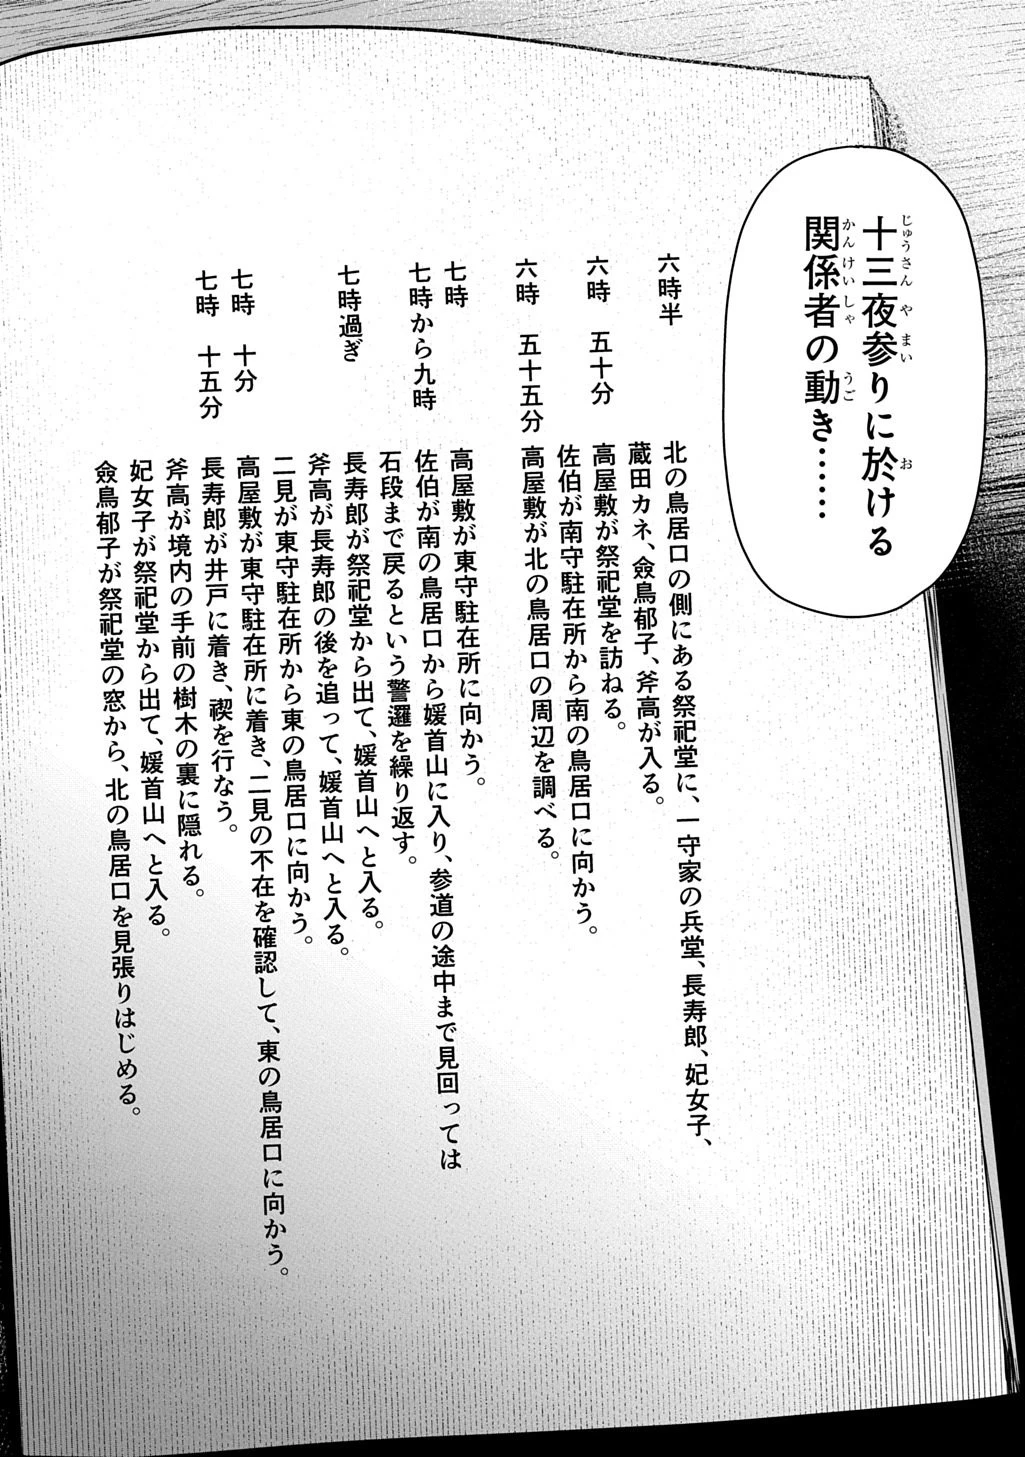 十三夜参りに於ける
関係者の動き……
六時半
北の鳥居口の側にある祭祀堂に、一守家の兵堂、長寿郎、妃女子、
蔵田カネ、僉鳥郁子、斧高が入る。
六時 五十分
高屋敷が祭祀堂を訪ねる。
佐伯が南守駐在所から南の鳥居口に向かう。
六時 五十五分
高屋敷が北の鳥居口の周辺を調べる。
七時
高屋敷が東守駐在所に向かう。
七時から九時
佐伯が南の鳥居口から媛首山に入り、参道の途中まで見回っては
石段まで戻るという警邏を繰り返す。
七時過ぎ
長寿郎が祭祀堂から出て、媛首山へと入る。
斧高が長寿郎の後を追って、媛首山へと入る。
二見が東守駐在所から東の鳥居口に向かう。
七時 十分
高屋敷が東守駐在所に着き、二見の不在を確認して、東の鳥居口に向かう。
七時 十五分
長寿郎が井戸に着き、禊を行なう。
斧高が境内の手前の樹木の裏に隠れる。
妃女子が祭祀堂から出て、媛首山へと入る。
僉鳥郁子が祭祀堂の窓から、北の鳥居口を見張りはじめる。